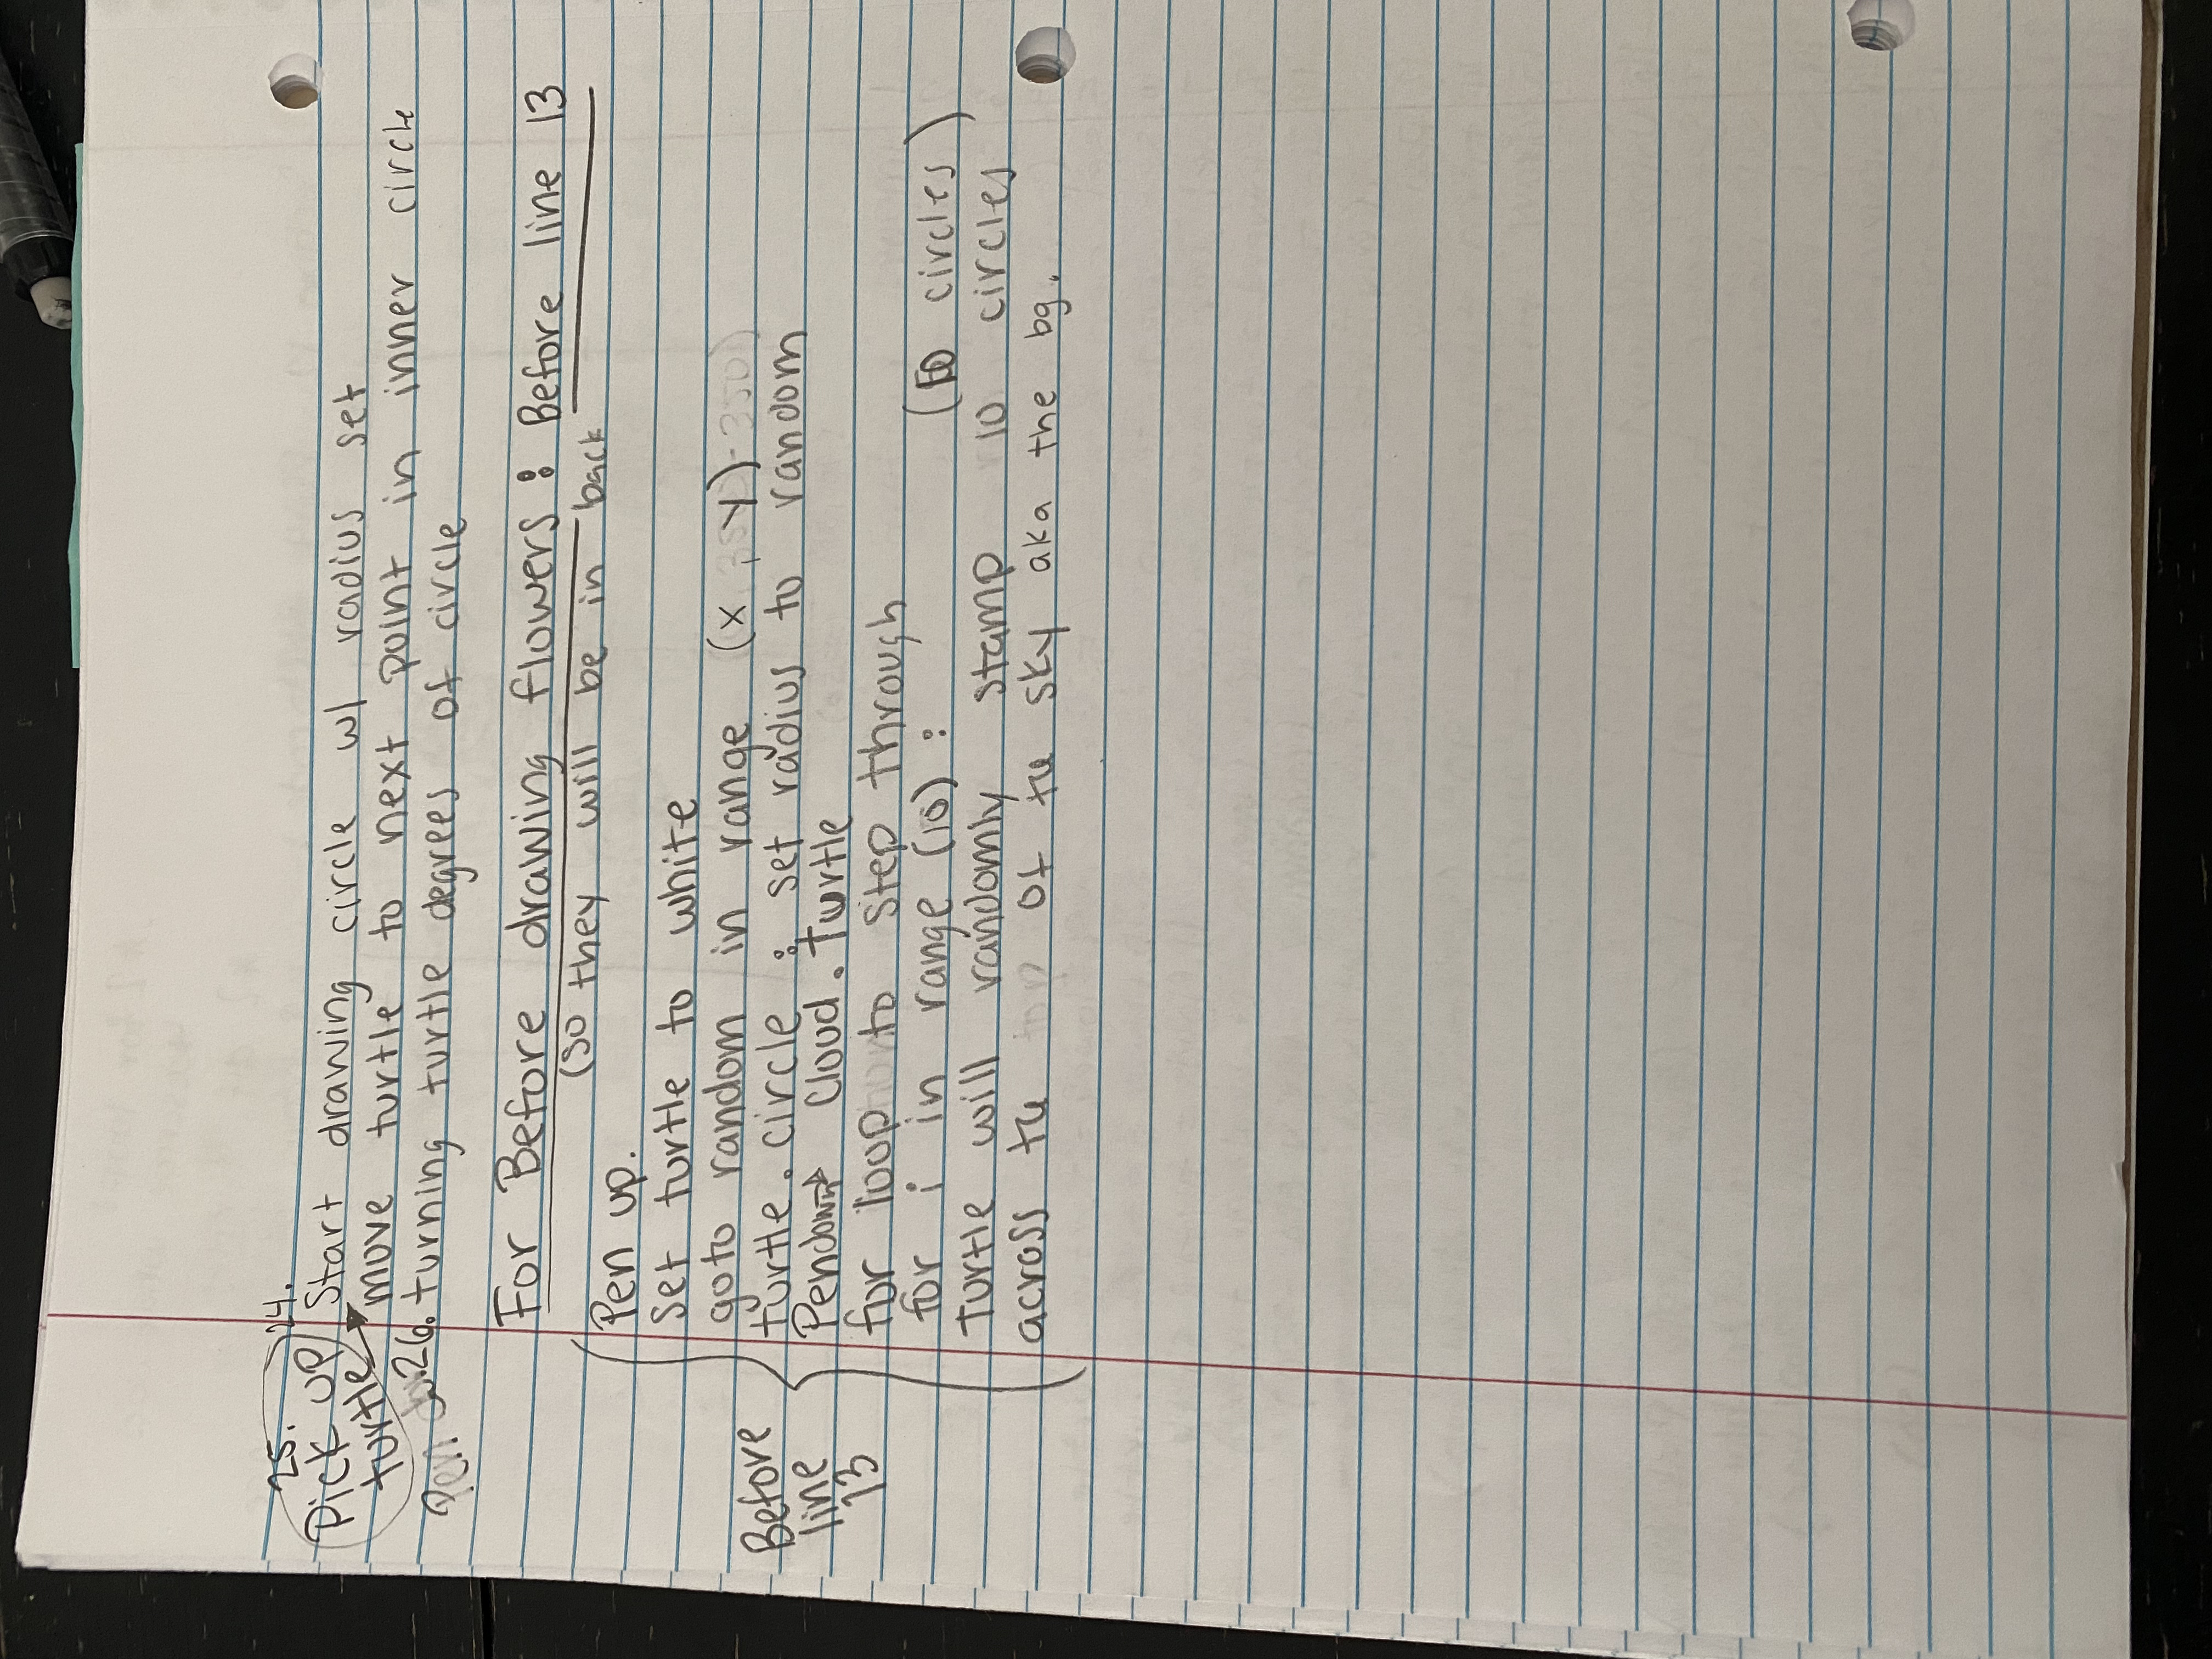 25.
Pick up
turtle
24.
Start drawing circle w/ radius set
move turtle to next point in inner circle
Pen
26. turning turtle degrees of circle
For Before drawing flowers : Before line 13
(so they will be in back
Pen up.
set turtle to white
goto random in range (x , y)
turtle.circle : set radius to random
Pendown Cloud.Turtle
for loop to step through
for i in range (10) : (10 circles)
Turtle will randomly stamp 10 circles
across the of the sky aka the bg.
Before
line
13